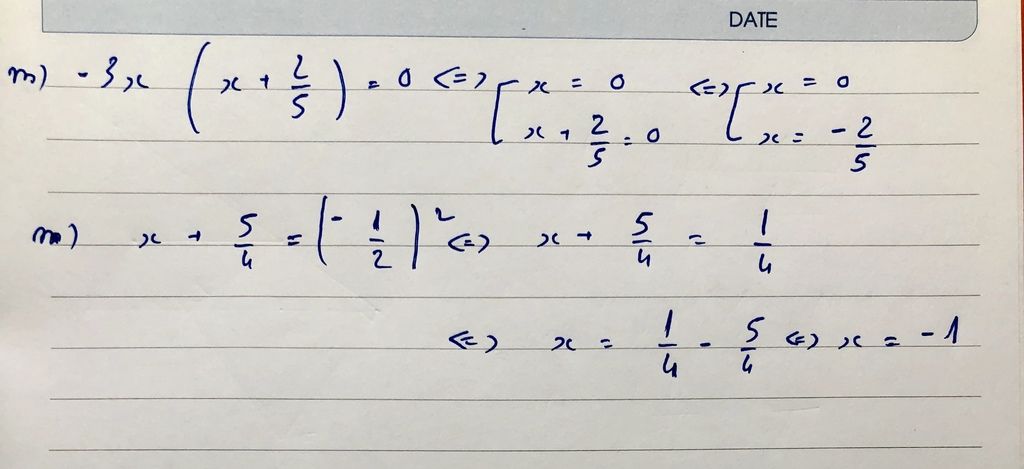 DATE
m) -3x (x + 2/5) = 0 <=> [ x = 0 <=> [ x = 0
x + 2/5 = 0 x = -2/5
m) x + 5/4 = (-1/2)^2 <=> x + 5/4 = 1/4
<=> x = 1/4 - 5/4 <=> x = -1